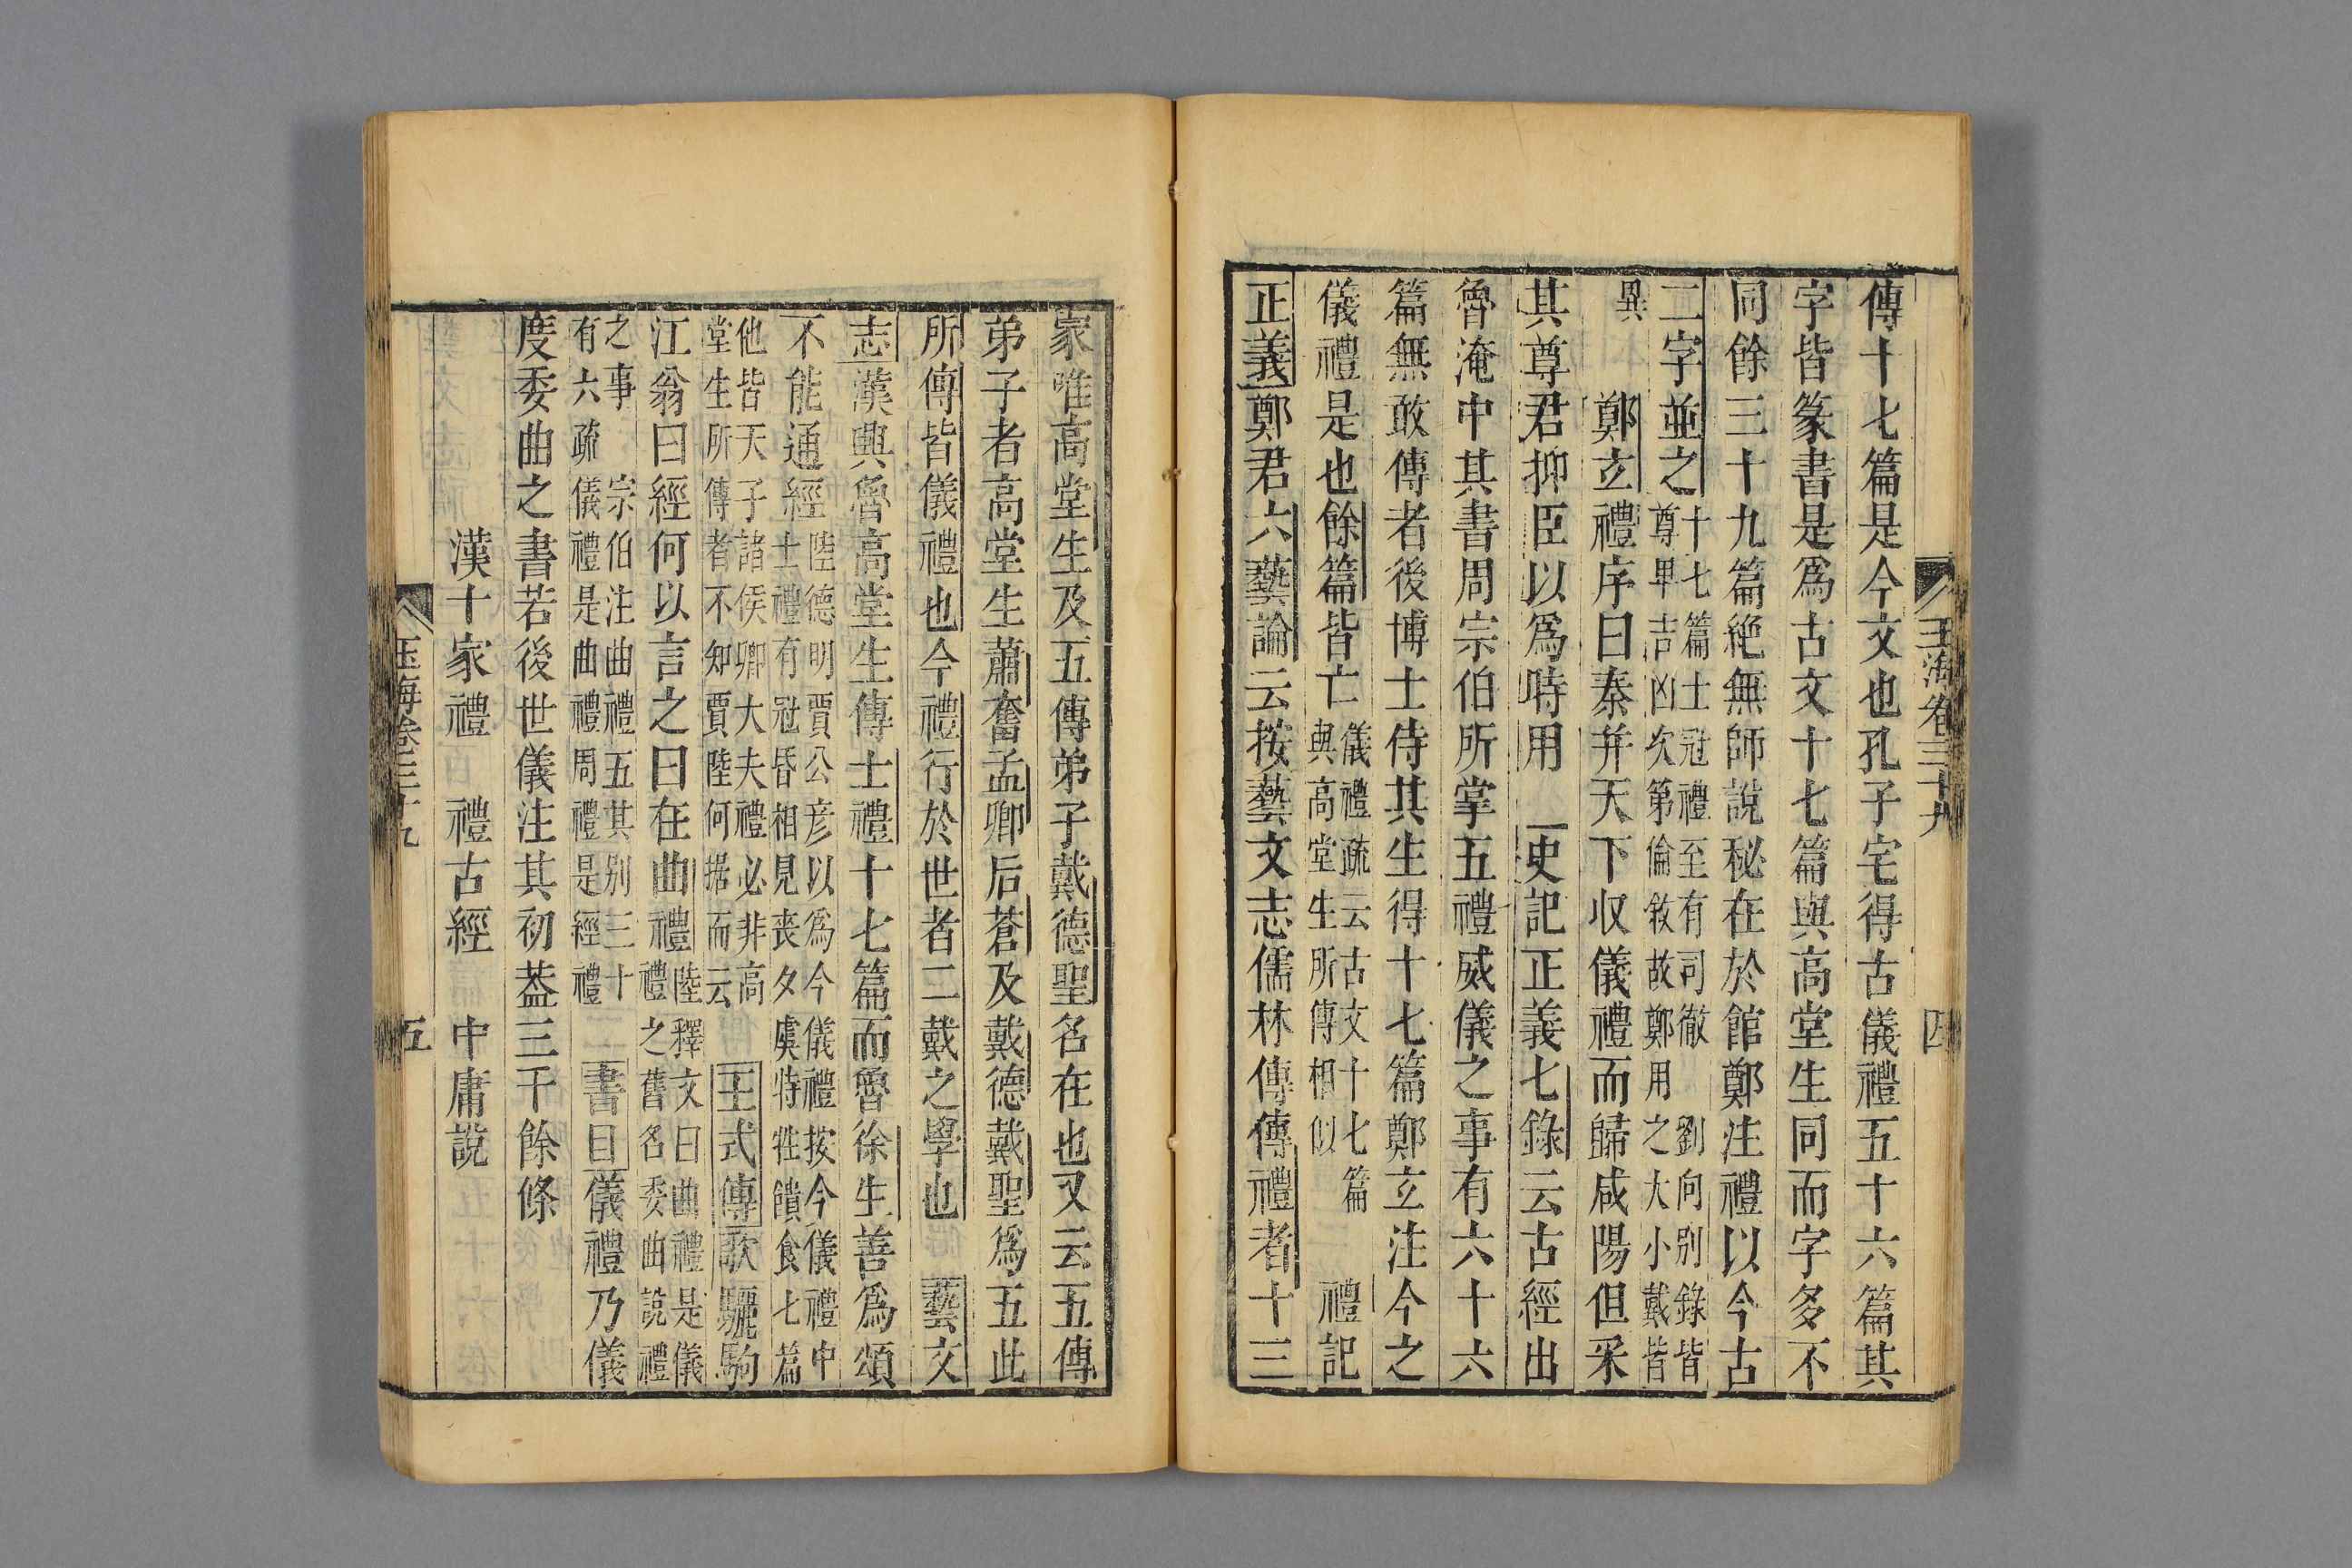 玉海卷三十九
四
傳十七篇是今文也孔子宅得古儀禮五十六篇其
字皆篆書是爲古文十七篇與高堂生同而字多不
同餘三十九篇絶無師說秘在於館鄭注禮以今古
二字並之十七篇士冠禮至有司徹 劉向別錄皆
尊卑吉凶次第倫敘故鄭用之大小戴皆
異 鄭玄禮序曰秦并天下收儀禮而歸咸陽但采
其尊君抑臣以爲時用 史記正義七錄云古經出
魯淹中其書周宗伯所掌五禮威儀之事有六十六
篇無敢傳者後博士侍其生得十七篇鄭玄注今之
儀禮是也餘篇皆亡儀禮疏云古文十七篇
與高堂生所傳相似 禮記
正義鄭君六藝論云按藝文志儒林傳傳禮者十三
家唯高堂生及五傳弟子戴德聖名在也又云五傳
弟子者高堂生蕭奮孟卿后蒼及戴德戴聖爲五此
所傳皆儀禮也今禮行於世者二戴之學也 藝文
志漢興魯高堂生傳士禮十七篇而魯徐生善爲頌
不能通經陸德明賈公彦以爲今儀禮按今儀禮中
士禮有冠昏相見喪夕虞特牲饋食七篇
他皆天子諸侯卿大夫禮必非高
堂生所傳者不知賈陸何据而云 王式傳歌驪駒
江翁曰經何以言之曰在曲禮陸釋文曰曲禮是儀
禮之舊名委曲説禮
之事 宗伯注曲禮五其别三十
有六疏儀禮是曲禮周禮是經禮 書目儀禮乃儀
度委曲之書若後世儀注其初葢三千餘條
漢十家禮 禮古經 中庸說
玉海卷三十九
五